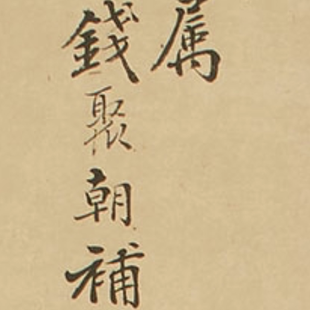 属
錢聚朝補